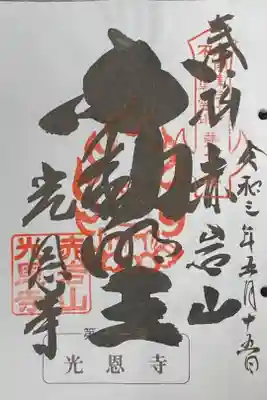 奉拝 赤岩山
令和三年五月十五日
不動明王
光恩寺
赤岩山
光恩寺
第
光恩寺